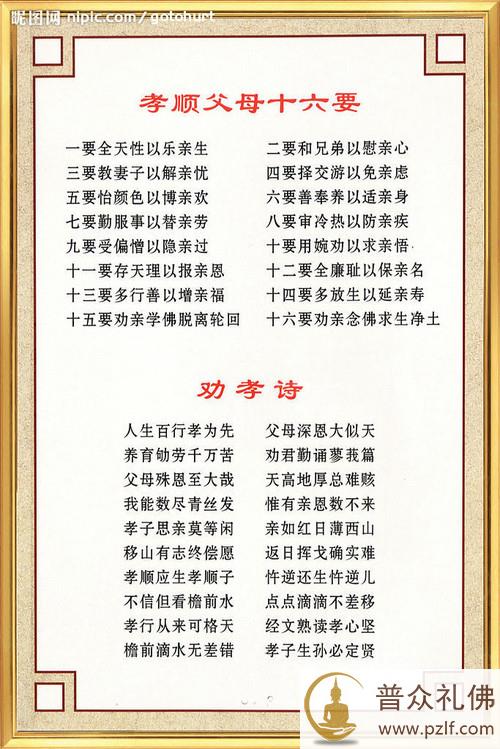 昵图网 nipic.com/gotohurt
孝顺父母十六要
一要全天性以乐亲生 二要和兄弟以慰亲心
三要教妻子以解亲忧 四要择交游以免亲虑
五要怡颜色以博亲欢 六要善奉养以适亲身
七要勤服事以替亲劳 八要审冷热以防亲疾
九要受偏憎以隐亲过 十要用婉劝以求亲悟
十一要存天理以报亲恩 十二要全廉耻以保亲名
十三要多行善以增亲福 十四要多放生以延亲寿
十五要劝亲学佛脱离轮回 十六要劝亲念佛求生净土
劝孝诗
人生百行孝为先 父母深恩大似天
养育劬劳千万苦 劝君勤诵蓼莪篇
父母殊恩至大哉 天高地厚总难赅
我能数尽青丝发 惟有亲恩数不来
孝子思亲莫等闲 亲如红日薄西山
移山有志终偿愿 返日挥戈确实难
孝顺应生孝顺子 忤逆还生忤逆儿
不信但看檐前水 点点滴滴不差移
孝行从来可格天 经文熟读孝心坚
檐前滴水无差错 孝子生孙必定贤
普众礼佛
www.pzlf.com